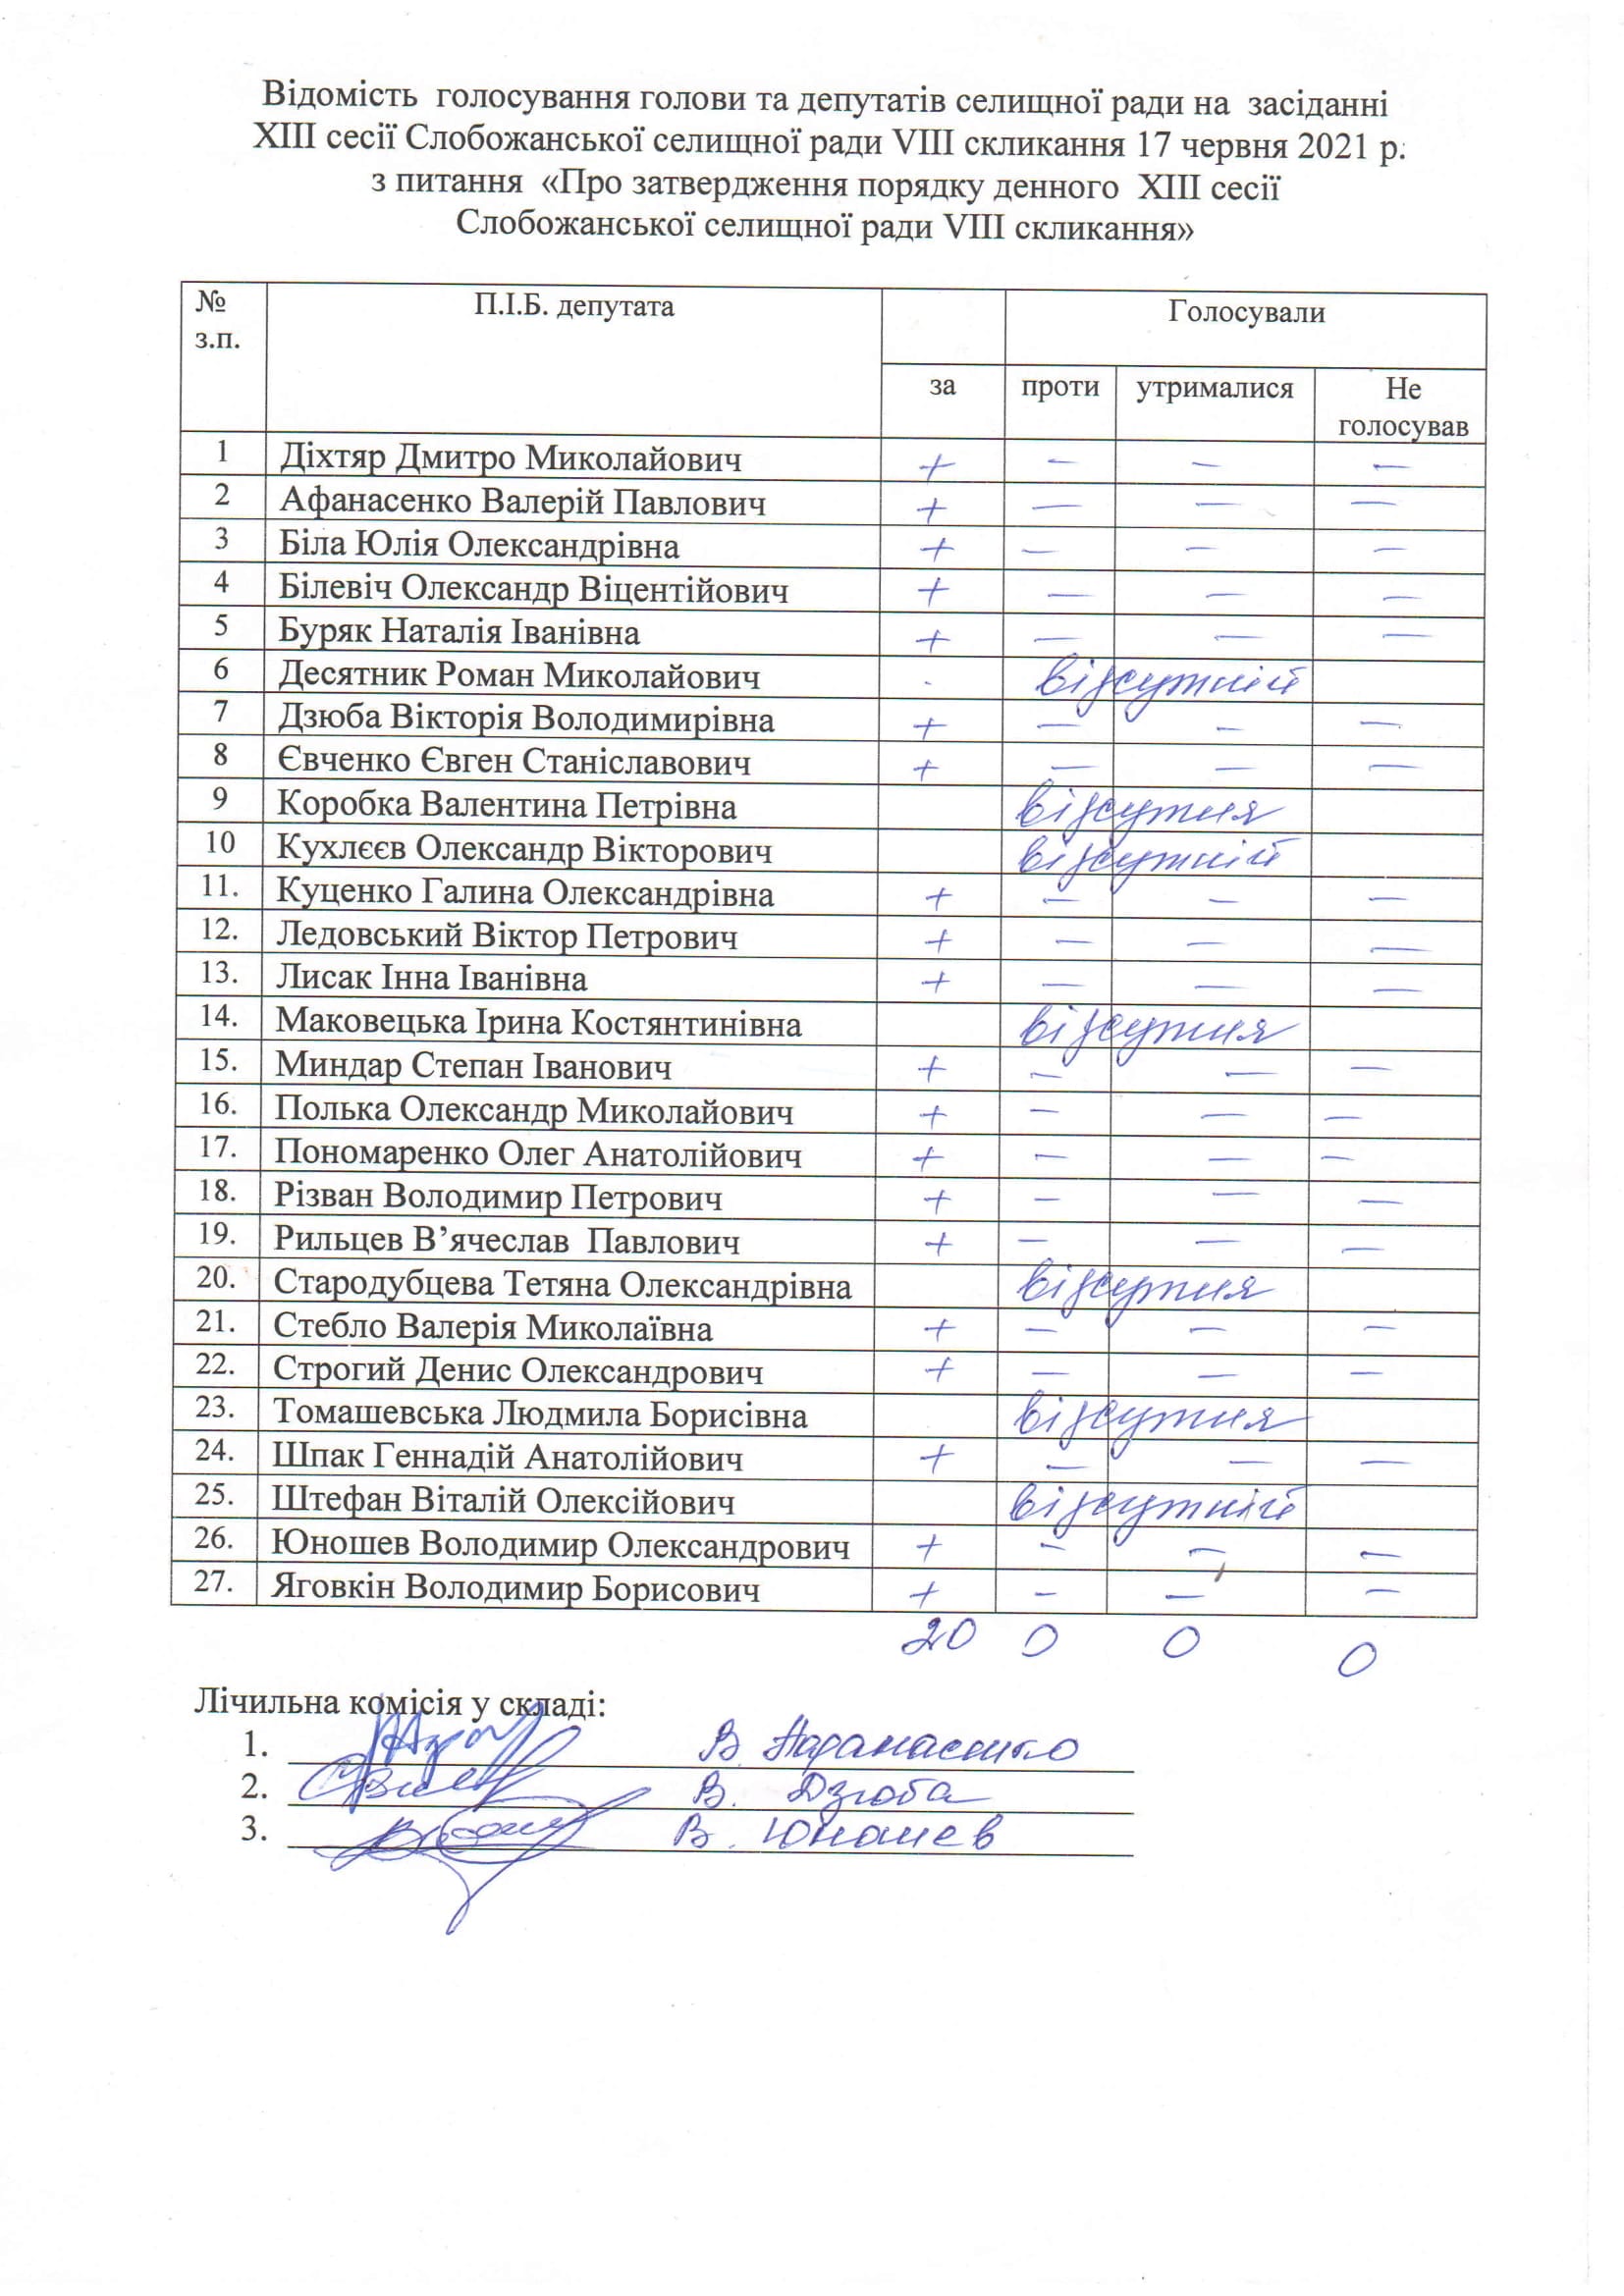 Відомість голосування голови та депутатів селищної ради на засіданні
XIII сесії Слобожанської селищної ради VIII скликання 17 червня 2021 р.
з питання «Про затвердження порядку денного XIII сесії
Слобожанської селищної ради VIII скликання»
№ з.п. П.І.Б. депутата Голосували
за проти утрималися Не голосував
1 Діхтяр Дмитро Миколайович + – – –
2 Афанасенко Валерій Павлович + – – –
3 Біла Юлія Олександрівна + – – –
4 Білевіч Олександр Віцентійович + – – –
5 Буряк Наталія Іванівна + – – –
6 Десятник Роман Миколайович відсутній
7 Дзюба Вікторія Володимирівна + – – –
8 Євченко Євген Станіславович + – – –
9 Коробка Валентина Петрівна відсутня
10 Кухлєєв Олександр Вікторович відсутній
11. Куценко Галина Олександрівна + – – –
12. Ледовський Віктор Петрович + – – –
13. Лисак Інна Іванівна + – – –
14. Маковецька Ірина Костянтинівна відсутня
15. Миндар Степан Іванович + – – –
16. Полька Олександр Миколайович + – – –
17. Пономаренко Олег Анатолійович + – – –
18. Різван Володимир Петрович + – – –
19. Рильцев В’ячеслав Павлович + – – –
20. Стародубцева Тетяна Олександрівна відсутня
21. Стебло Валерія Миколаївна + – – –
22. Строгий Денис Олександрович + – – –
23. Томашевська Людмила Борисівна відсутня
24. Шпак Геннадій Анатолійович + – – –
25. Штефан Віталій Олексійович відсутній
26. Юношев Володимир Олександрович + – – –
27. Яговкін Володимир Борисович + – – –
20 0 0 0
Лічильна комісія у складі:
1. В. Афанасенко
2. В. Дзюба
3. В. Юношев